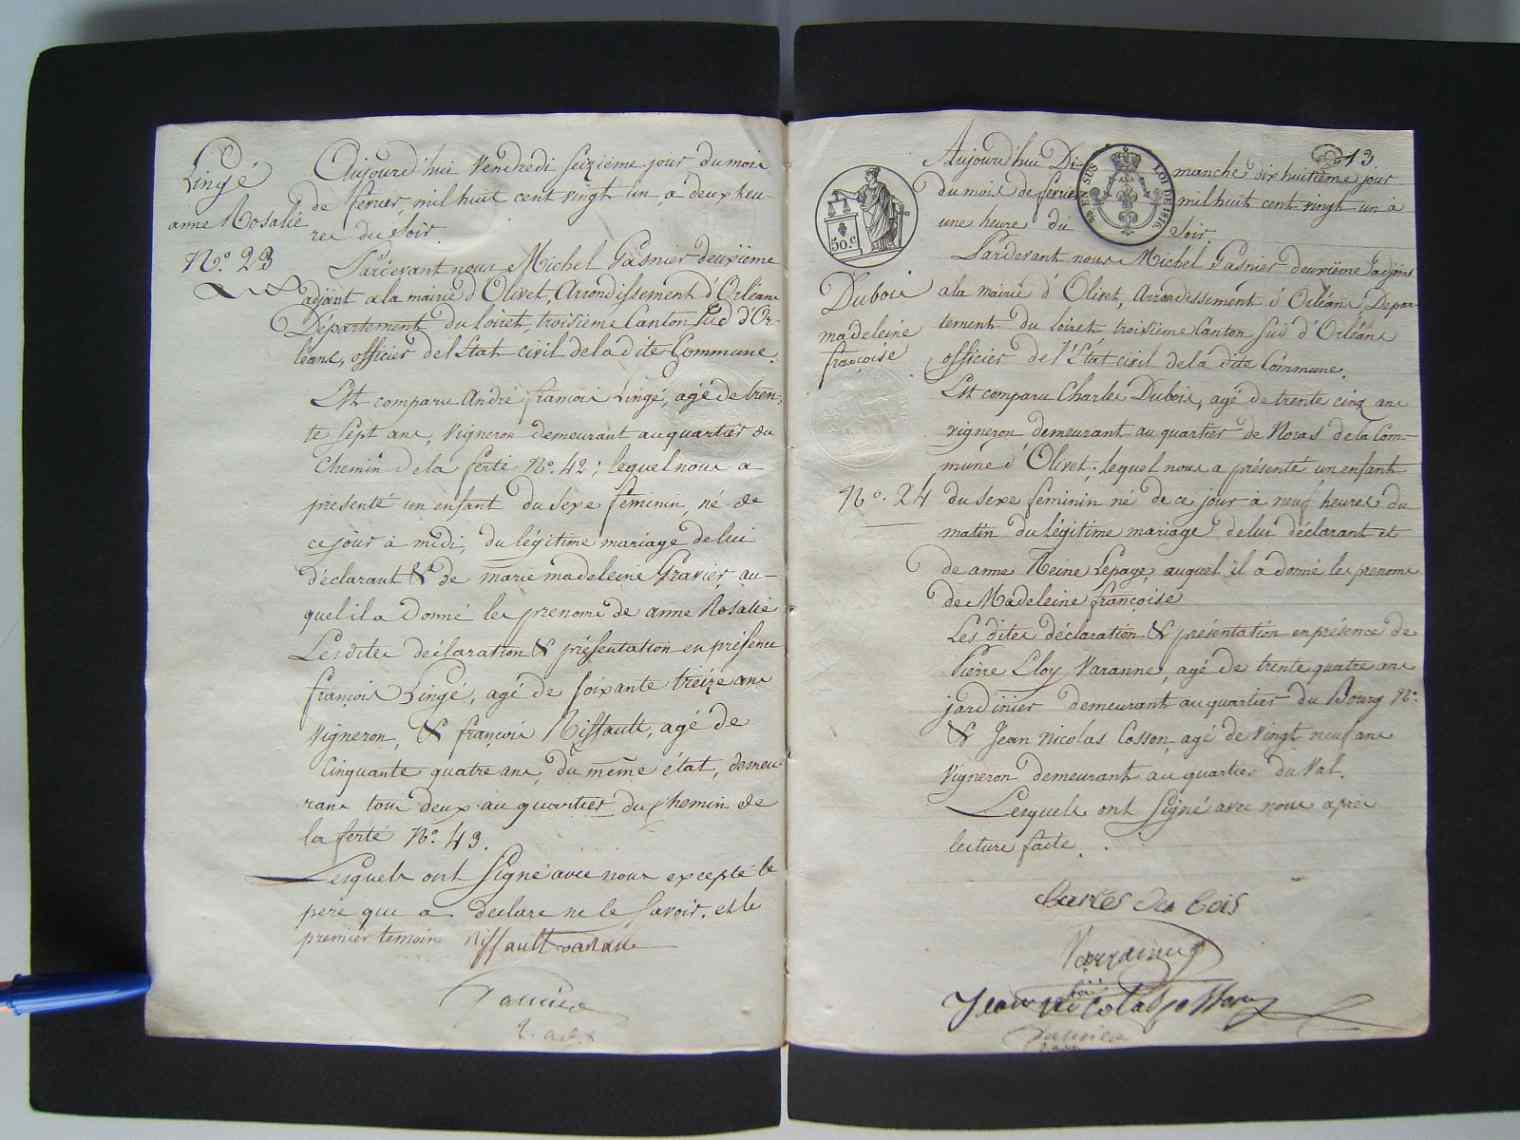 Lingé
anne Rosalie
N.º 23
Aujourd'hui Vendredi seizieme jour du mois
de fevrier mil huit cent vingt un à deux heu-
res du soir.
Pardevant nous Michel Gasnier deuxiéme
adjoint a la mairie d'Olivet, Arrondissement d'Orléans
Département du Loiret, troisieme Canton Sud d'Or-
léans, officier de l'Etat civil de la dite Commune.
Est comparu André françois Lingé, agé de tren-
te sept ans, Vigneron demeurant au quartier du
Chemin de la ferté N.º 42; lequel nous a
presenté un enfant du sexe féminin, né de
ce jour à midi, du légitime mariage de lui
déclarant & de marie madeleine Gravier, au-
quel il a donné les prenoms de anne Rosalie
Lesdites déclaration & présentation en présence
françois Lingé, agé de soixante treize ans
Vigneron, & françois Riffault, agé de
Cinquante quatre ans, du même état, demeu-
rans tous deux au quartier du Chemin de
la ferté N.º 43.
Lesquels ont signé avec nous excepté le
pere que a declare ne le savoir. et le
premier temoin Riffault
Gasnier
2. adj.
13
EN SUS
LOI DE 1816
50 c
Aujourd'hui Di- manche dix huitième jour
du mois de fevrier mil huit cent vingt un à
une heure du soir.
Pardevant nous Michel Gasnier deuxiéme adjoint
a la mairie d'Olivet, Arrondissement d'Orléans, Dépar-
tement du Loiret troisieme Canton Sud d'Orléans
officier de l'Etat civil de la dite Commune.
Dubois
madeleine
françoise
N.º 24
Est comparu Charles Dubois, agé de trente cinq ans
vigneron demeurant au quartier de Noras de la Com-
mune d'Olivet; lequel nous a présenté un enfant
du sexe féminin né de ce jour à neuf heures du
matin du légitime mariage de lui déclarant et
de anne Reine Lepage, auquel il a donné les prenoms
de Madeleine françoise
Les dites déclaration & présentation en présence de
Pierre Eloy Varanne, agé de trente quatre ans
jardinier demeurant au quartier du Bourg N.º
& Jean Nicolas Cosson, agé de Vingt neuf ans
Vigneron demeurant au quartier du Val.
Lesquels ont signé avec nous apres
lecture faite.
Charles du bois
Varanne
Jean nicolas Cosson
Gasnier